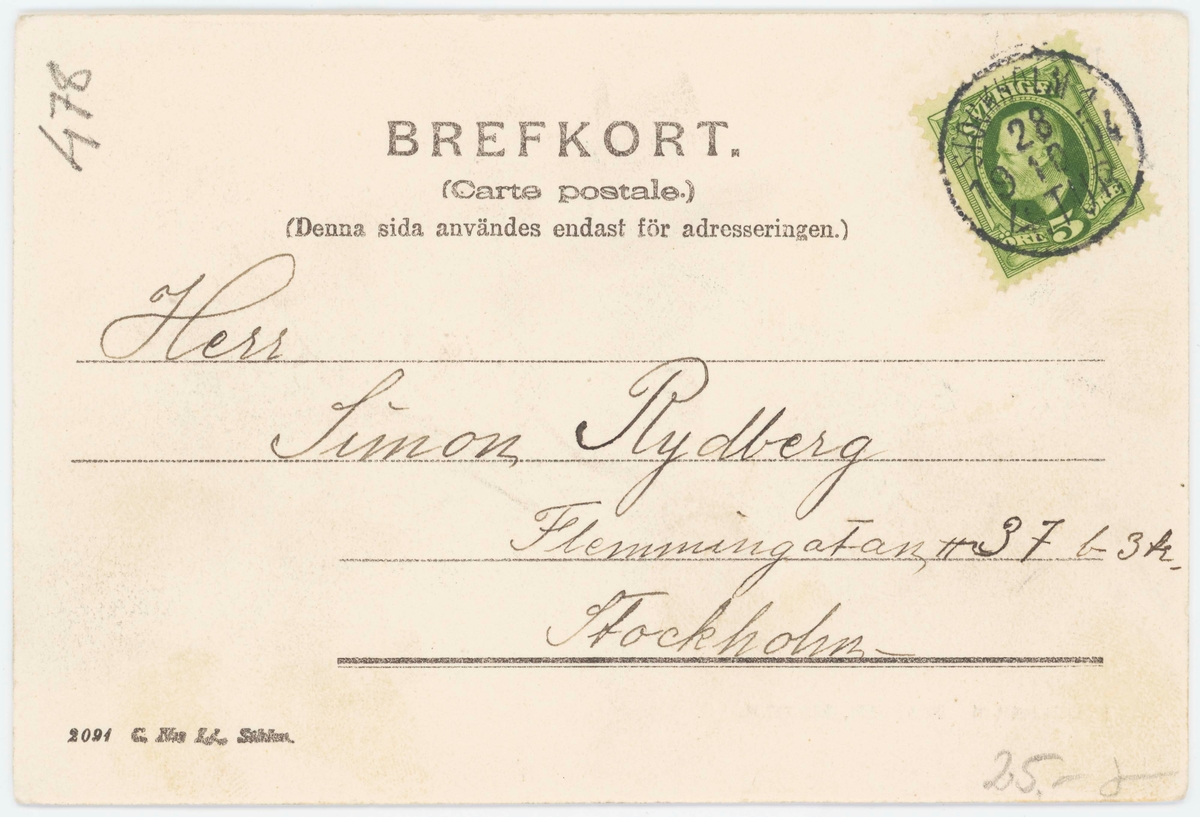 478
BREFKORT.
(Carte postale.)
(Denna sida användes endast för adresseringen.)
SVERIGE
28
10
5
ÖRE
Herr
Simon Rydberg
Flemmingatan # 37 b 3 tr.
Stockholm
2091
25.-